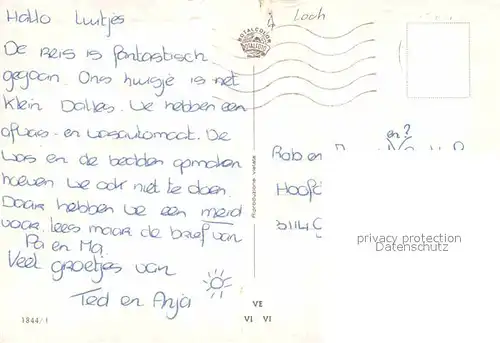 Hallo Luitjes
De reis is fantastisch
gegaan. Ons huisje is net
klein Dallas. We hebben een
afwas- en wasautomaat. De
was en de bedden opmaken
hoeven we ook niet te doen.
Daar hebben we een meid
voor. Lees maar de brief van
Pa en Ma.
Veel groetjes van
Ted en Anja
1844/1
Loch
ROTALCOLOR
ROTALFOTO
MILANO
Riproduzione vietata
VE
VI VI
en?
Rob en
Hoofd
3114 C
privacy protection
Datenschutz